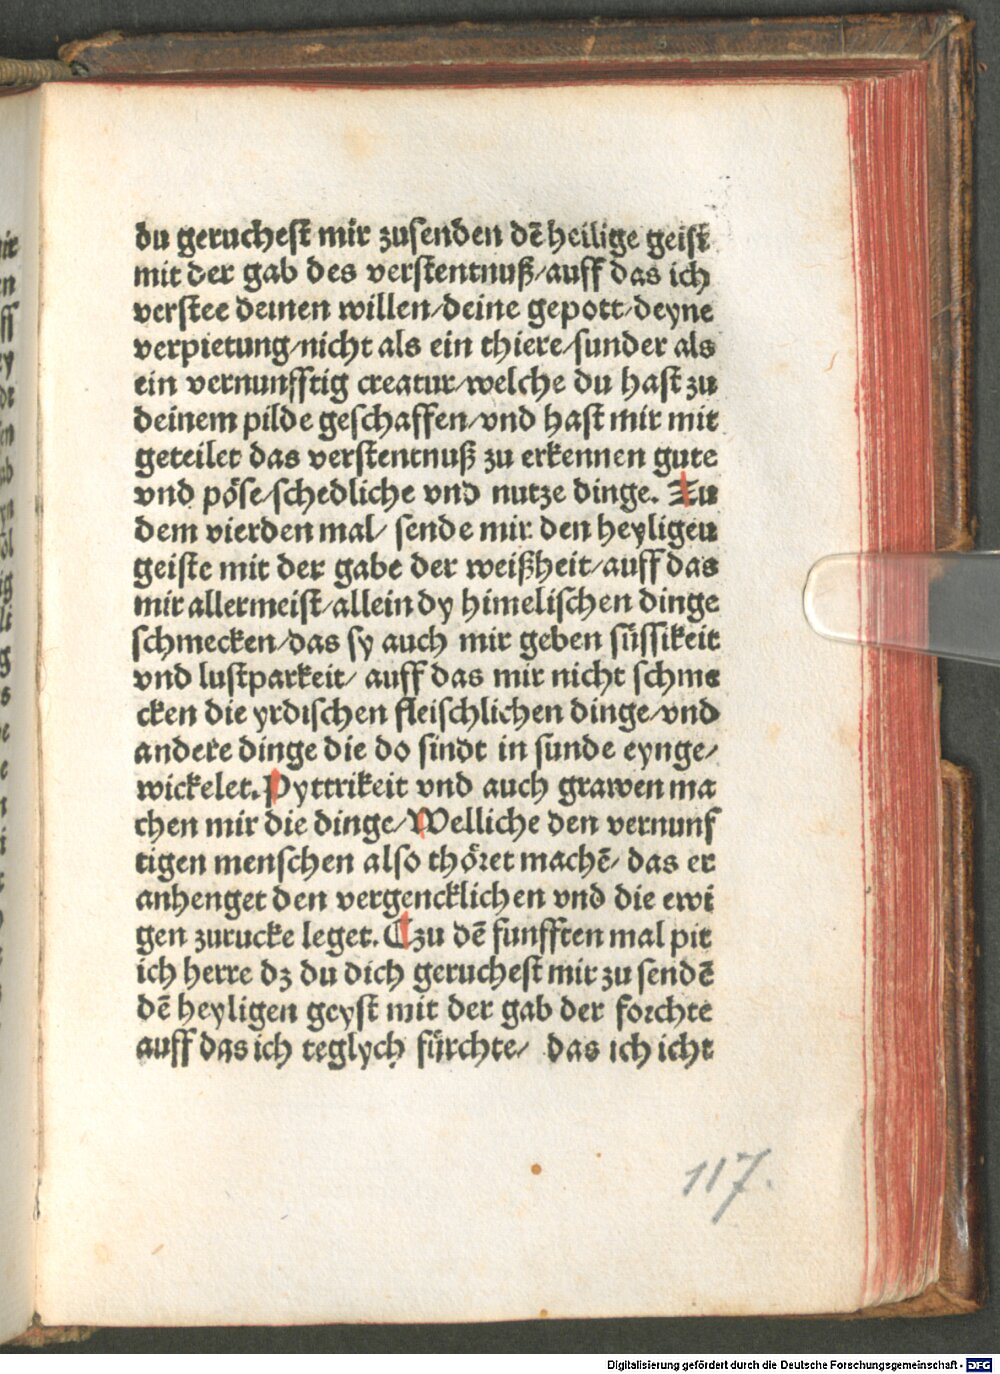 du geruchest mir zusenden dē heilige geist
mit der gab des verstentnuß/auff das ich
verstee deinen willen/deine gepott/deyne
verpietung/nicht als ein thiere/sunder als
ein vernunfftig creatur/welche du hast zu
deinem pilde geschaffen/vnd hast mir mit
geteilet das verstentnuß zu erkennen gute
vnd pöse/schedliche vnd nutze dinge. Zu
dem vierden mal/ sende mir den heyligen
geiste mit der gabe der weißheit/auff das
mir allermeist/allein dy himelischen dinge
schmecken/das sy auch mir geben süssikeit
vnd lustparkeit/ auff das mir nicht schme
cken die yrdischen fleischlichen dinge/vnd
andere dinge die do sindt in sunde eynge/
wickelet. Pyttrikeit vnd auch grawen ma
chen mir die dinge/Welliche den vernunf
tigen menschen also thöret machē/ das er
anhenget den vergencklichen vnd die ewi
gen zurucke leget. ¶zu dē funfften mal pit
ich herre dz du dich geruchest mir zu sendē
dē heyligen geyst mit der gab der forchte
auff das ich teglych fürchte/ das ich icht
117.
Digitalisierung gefördert durch die Deutsche Forschungsgemeinschaft - DFG